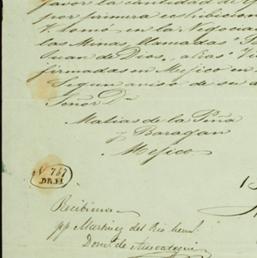 favor la cantidad de
por primera exhibicion
y como en la negocia
las Minas, llamadas
Juan de Dios, alias
firmadas en Mejico en
Segun aviso de su
Señor Dn
Matias de la Piña
y Baragan
Mejico
Nº 767
Recibimos
pp Martinez del Rio herms